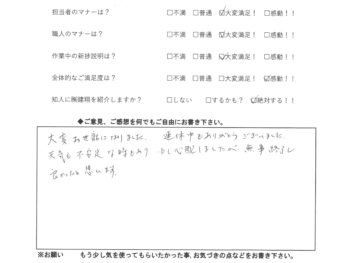 担当者のマナーは? □不満 □普通 ☑大変満足! □感動!!
職人のマナーは? □不満 □普通 ☑大変満足! □感動!!
作業中の新捗説明は? □不満 □普通 ☑大変満足! □感動!!
全体的なご満足度は? □不満 □普通 □大変満足! ☑感動!!
知人に㈱建翔を紹介しますか? □しない □するかも? ☑絶対する!!
◆ご意見、ご感想を何でもご自由にお書き下さい。
大変お世話になりました。 連休中もありがとうございました
天気も不安定な時もあり 少し心配しましたが 無事終了し
良かったと思います。
※お願い もう少し気を使ってもらいたかった事、お気づきの点などをお書き下さい。